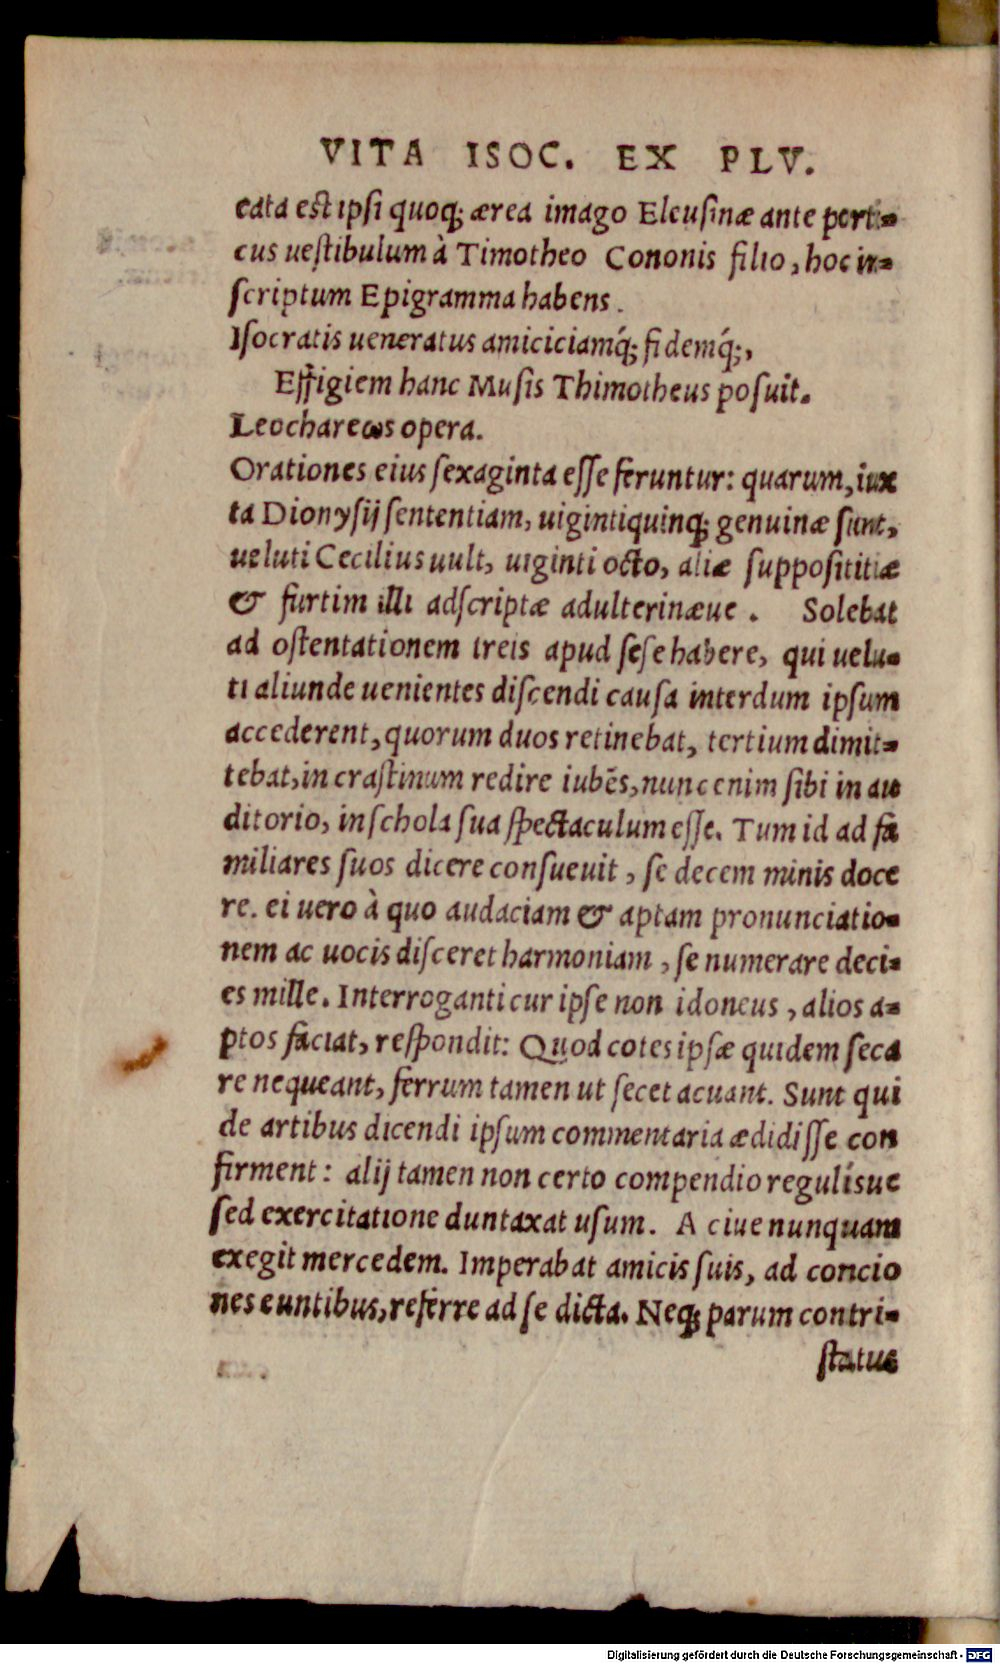 VITA ISOC. EX PLV.
cata est ipsi quoq; ærea imago Eleusinæ ante porti-
cus uestibulum à Timotheo Cononis filio, hoc in-
scriptum Epigramma habens.
Isocratis ueneratus amiciciamq́; fidemq́;,
Effigiem hanc Musis Thimotheus posuit.
Leochareωs opera.
Orationes eius sexaginta esse feruntur: quarum, iux
ta Dionysij sententiam, uigintiquinq; genuinæ sunt,
ueluti Cecilius uult, uiginti octo, aliæ supposititiæ
& furtim illi adscriptæ adulterinæue. Solebat
ad ostentationem treis apud sese habere, qui uelu-
ti aliunde uenientes discendi causa interdum ipsum
accederent, quorum duos retinebat, tertium dimit-
tebat, in crastinum redire iubēs, nunc enim sibi in au
ditorio, in schola sua spectaculum esse. Tum id ad fa
miliares suos dicere consueuit, se decem minis doce
re. ei uero à quo audaciam & aptam pronunciatio-
nem ac uocis disceret harmoniam, se numerare deci-
es mille. Interroganti cur ipse non idoneus, alios a-
ptos faciat, respondit: Quod cotes ipsæ quidem seca
re nequeant, ferrum tamen ut secet acuant. Sunt qui
de artibus dicendi ipsum commentaria ædidisse con
firment: alij tamen non certo compendio regulísue
sed exercitatione duntaxat usum. A ciue nunquam
exegit mercedem. Imperabat amicis suis, ad concio
nes euntibus, referre ad se dicta. Neq; parum contri-
status
Digitalisierung gefördert durch die Deutsche Forschungsgemeinschaft - DFG